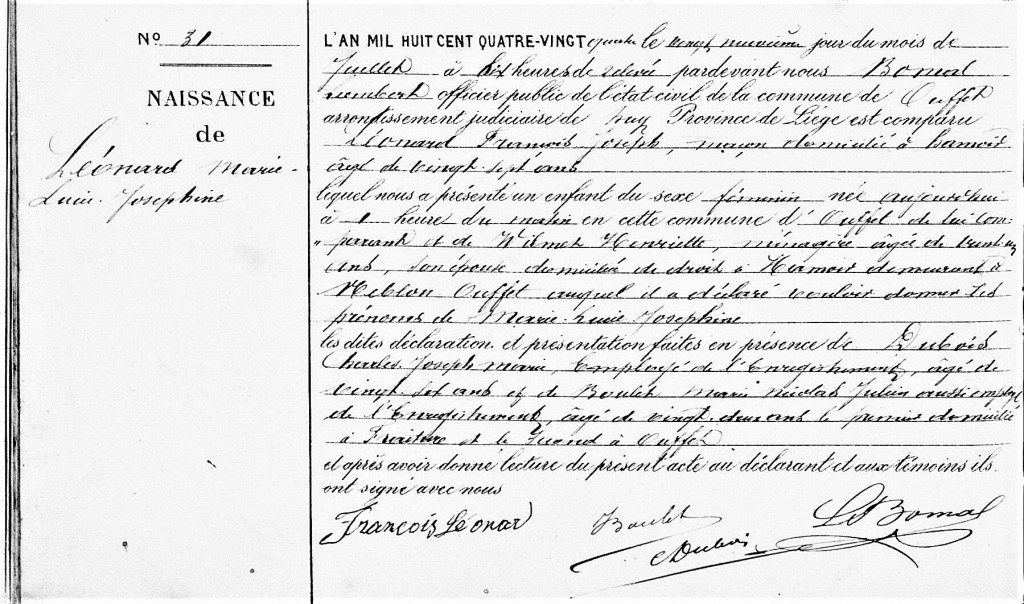 N° 31
NAISSANCE
de
Léonard Marie-
Lucie-Josephine
L'AN MIL HUIT CENT QUATRE-VINGT quatre le vingt neuvième jour du mois de
Juillet à six heures de relevée pardevant nous Bomal
Lambert officier public de l'état civil de la commune de Ouffet
arrondissement judiciaire de Huy Province de Liége est comparu
Léonard François Joseph, maçon domicilié à Hamoir
âgé de vingt-sept ans
lequel nous a présenté un enfant du sexe féminin née aujourd'hui
à 1 heure du matin en cette commune d'Ouffet de lui com-
" parant et de Wilmet Henriette, ménagère âgée de
ans, son épouse domiciliée de droit à Hamoir demeurant à
Ouffet auquel il a déclaré vouloir donner les
prénoms de Marie-Lucie Josephine
les dites déclaration et présentation faites en présence de Dubois
Charles Joseph Marie, Employé de l'Enregistrement, âgé de
vingt-sept ans et de Boulet Marie Nicolas Julien aussi employé
de l'Enregistrement, âgé de vingt-deux ans le premier domicilié
à Fraiture et le second à Ouffet
et après avoir donné lecture du présent acte au déclarant et aux témoins ils
ont signé avec nous
François Léonar Boulet LBomal
CDubois